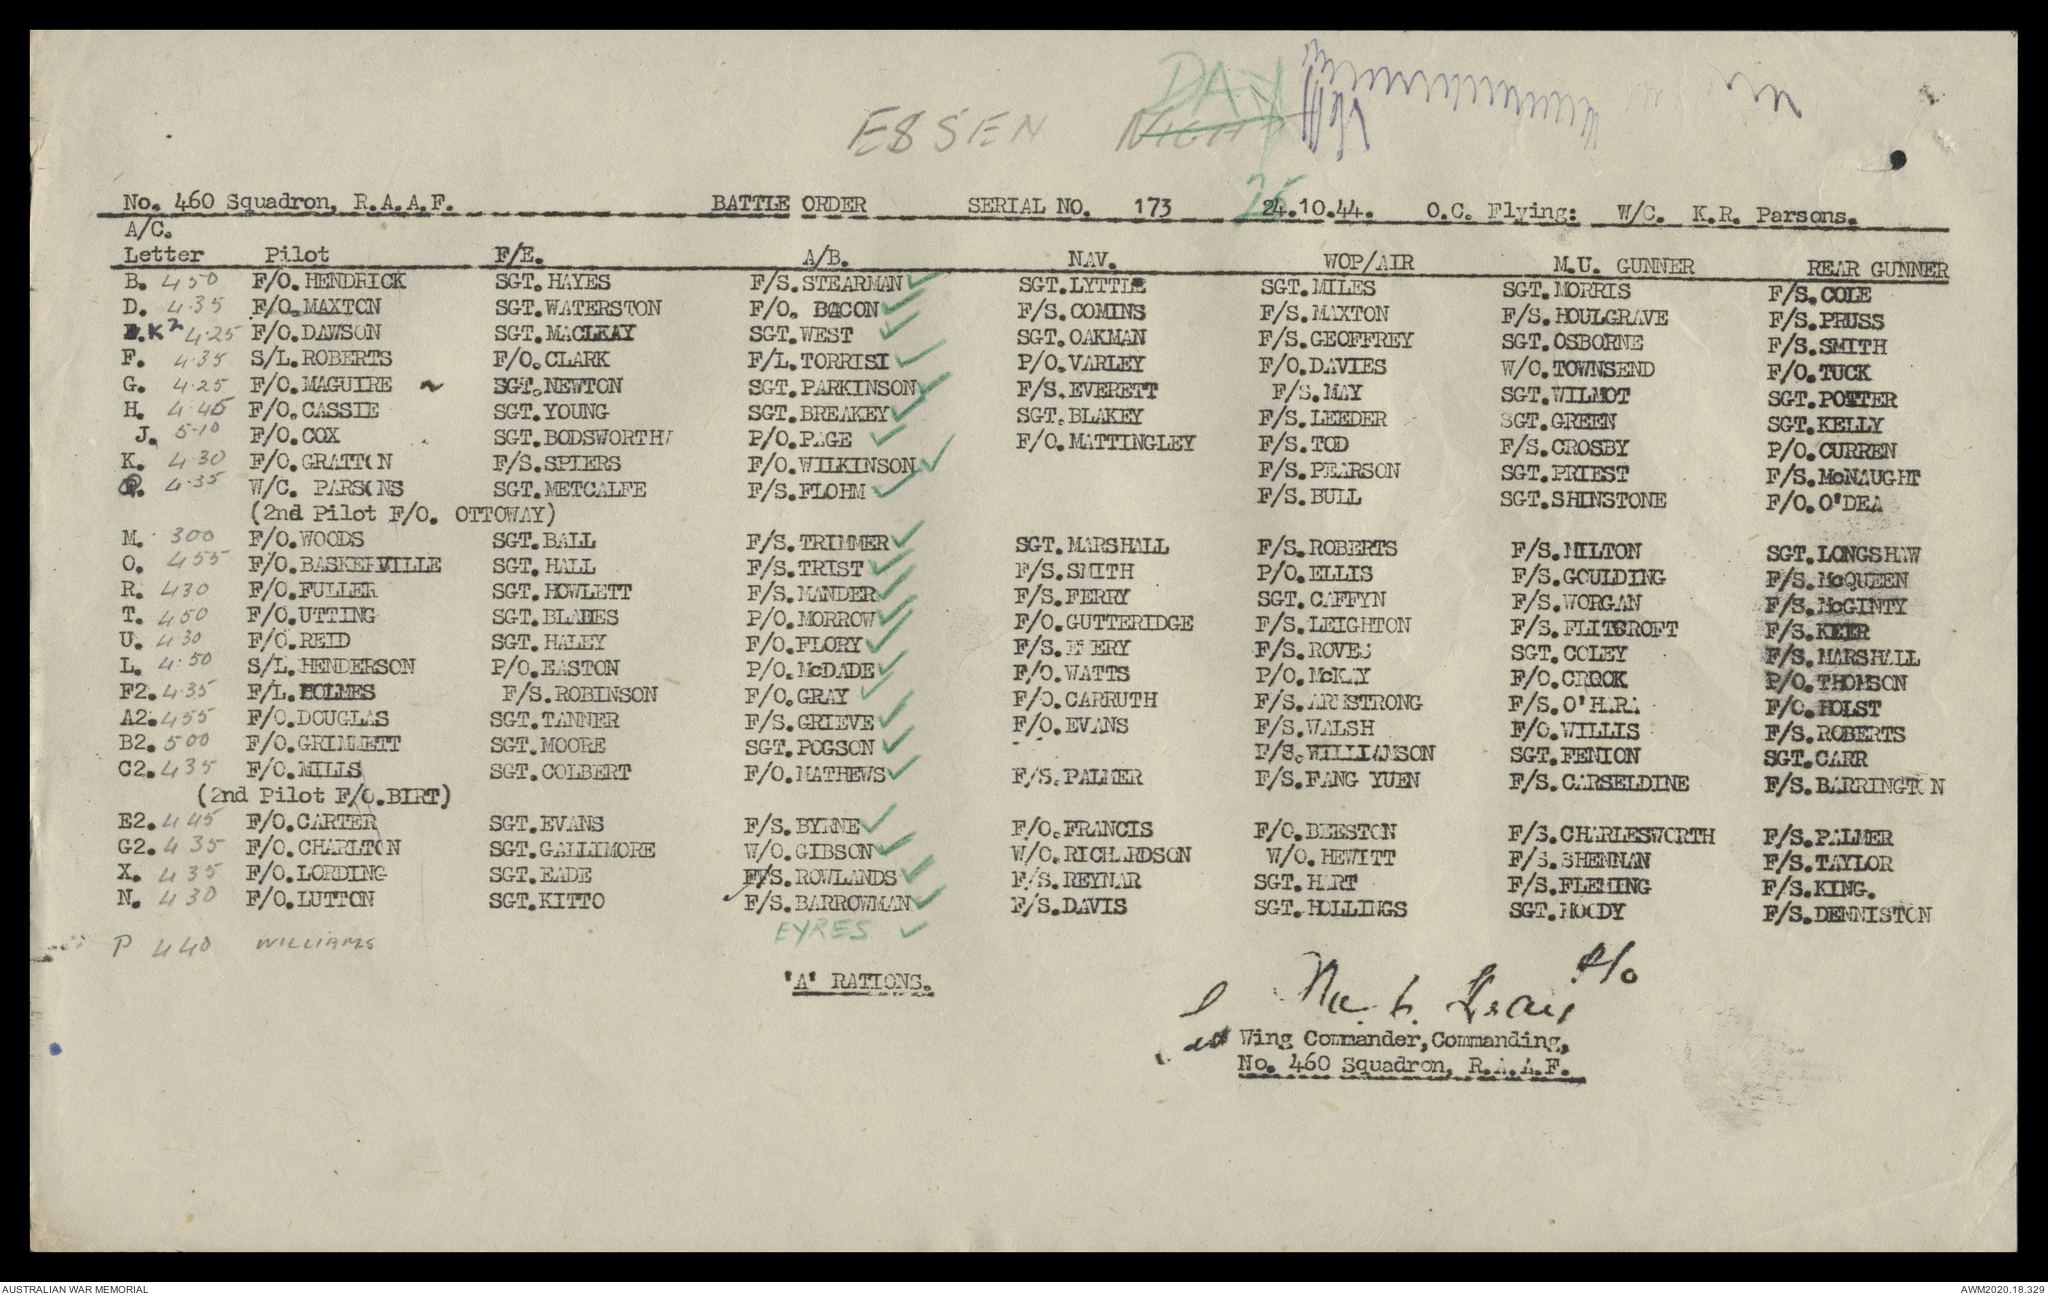 DAY
ESSEN NIGHT
No. 460 Squadron, R.A.A.F. BATTLE ORDER SERIAL NO. 173 25 24.10.44. O.C. Flying: W/C. K.R. Parsons.
A/C.
Letter Pilot F/E. A/B. NAV. WOP/AIR M.U. GUNNER REAR GUNNER
B. 450 F/O.HENDRICK SGT.HAYES F/S.STEARMAN ✓ SGT.LYTTLE SGT.MILES SGT.MORRIS F/S.COLE
D. 4.35 F/O.MAXTON SGT.WATERSTON F/O. BACON ✓ F/S.COMINS F/S.MAXTON F/S.HOULGRAVE F/S.PRUSS
K2 4.25 F/O.DAWSON SGT.MACLEAY SGT.WEST ✓ SGT.OAKMAN F/S.GEOFFREY SGT.OSBORNE F/S.SMITH
F. 4.35 S/L.ROBERTS F/O.CLARK F/L.TORRISI ✓ P/O.VARLEY F/O.DAVIES W/O.TOWNSEND F/O.TUCK
G. 4.25 F/O.MAGUIRE ~ SGT.NEWTON SGT.PARKINSON ✓ F/S.EVERETT F/S.MAY SGT.WILMOT SGT.POTTER
H. 4.45 F/O.CASSIE SGT.YOUNG SGT.BREAKEY ✓ SGT.BLAKEY F/S.LEEDER SGT.GREEN SGT.KELLY
J. 5.10 F/O.COX SGT.BODSWORTH P/O.PAGE ✓ F/O.MATTINGLEY F/S.TOD F/S.CROSBY P/O.CURREN
K. 4.30 F/O.GRATTON F/S.SPIERS F/O.WILKINSON ✓ F/S.PEARSON SGT.PRIEST F/S.McNAUGHT
Q. 4.35 W/C. PARSONS SGT.METCALFE F/S.FLOHM ✓ F/S.BULL SGT.SHINSTONE F/O.O'DEA
(2nd Pilot F/O. OTTOWAY)
M. 300 F/O.WOODS SGT.BALL F/S.TRIMMER ✓ SGT.MARSHALL F/S.ROBERTS F/S.MILTON SGT.LONGSHAW
O. 455 F/O.BASKERVILLE SGT.HALL F/S.TRIST ✓ F/S.SMITH P/O.ELLIS F/S.GOULDING F/S.McQUEEN
R. 430 F/O.FULLER SGT.HOWLETT F/S.MANDER ✓ F/S.FERRY SGT.CAFFYN F/S.WORGAN F/S.McGINTY
T. 450 F/O.UTTING SGT.BLADES P/O.MORROW ✓ F/O.GUTTERIDGE F/S.LEIGHTON F/S.FLITCROFT F/S.KEIR
U. 430 F/O.REID SGT.HALEY F/O.FLORY ✓ F/S.EMERY F/S.ROVES SGT.COLEY F/S.MARSHALL
L. 4.50 S/L.HENDERSON P/O.EASTON P/O.McDADE ✓ F/O.WATTS P/O.McKAY F/O.CROOK P/O.THOMSON
F2. 4.35 F/L.HOLMES F/S.ROBINSON F/O.GRAY ✓ F/O.CARRUTH F/S.ARMSTRONG F/S.O'HARA F/O.HOLST
A2. 455 F/O.DOUGLAS SGT.TANNER F/S.GRIEVE ✓ F/O.EVANS F/S.WALSH F/O.WILLIS F/S.ROBERTS
B2. 500 F/O.GRIMMETT SGT.MOORE SGT.POGSON ✓ F/S.WILLIAMSON SGT.FENION SGT.CARR
C2. 435 F/O.MILLS SGT.COLBERT F/O.MATHEWS ✓ F/S.PALMER F/S.FANG YUEN F/S.CARSELDINE F/S.BARRINGTON
(2nd Pilot F/O.BIRT)
E2. 445 F/O.CARTER SGT.EVANS F/S.BYRNE ✓ F/O.FRANCIS F/O.BEESTON F/S.CHARLESWORTH F/S.PALMER
G2. 435 F/O.CHARLTON SGT.GALLIMORE W/O.GIBSON ✓ W/O.RICHARDSON W/O.HEWITT F/S.SHENNAN F/S.TAYLOR
X. 435 F/O.LORDING SGT.EADE F/S.ROWLANDS ✓ F/S.REYNAR SGT.HART F/S.FLEMING F/S.KING.
N. 430 F/O.LUTTON SGT.KITTO F/S.BARROWMAN ✓ F/S.DAVIS SGT.HOLLINGS SGT.MOODY F/S.DENNISTON
EYRES ✓
P 440 WILLIAMS
'A' RATIONS.
F/O
Wing Commander, Commanding,
No. 460 Squadron, R.A.A.F.
AUSTRALIAN WAR MEMORIAL AWM2020.18.329